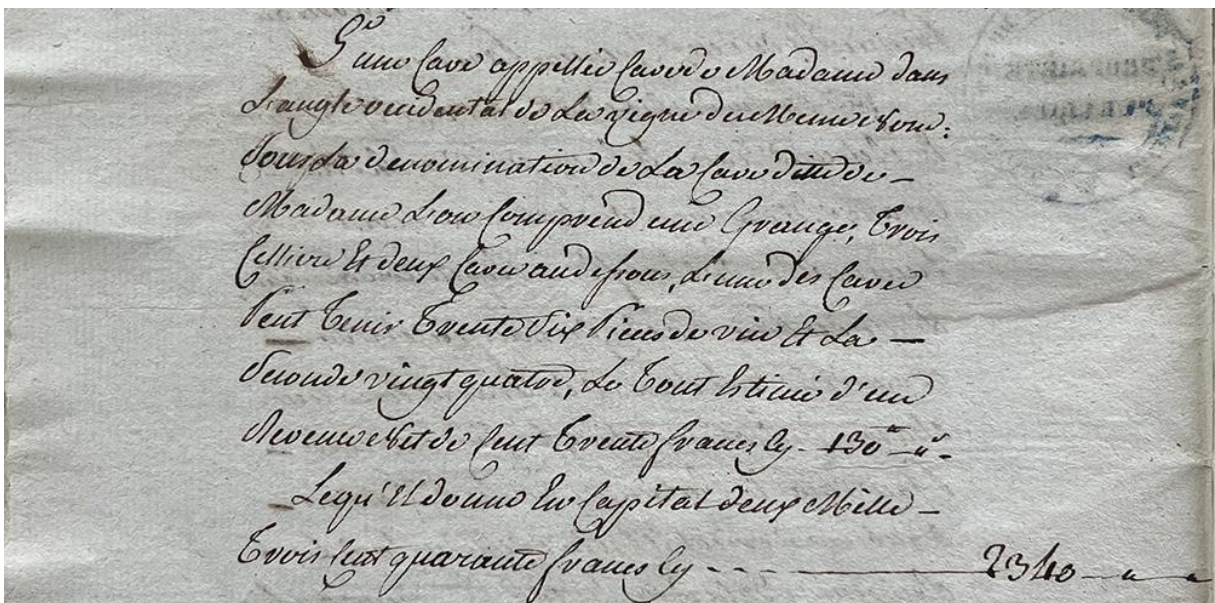 5° une Cave appellée Cave de Madame dans
L'angle occidental de La vigne du Meme nom:
Sous La denomination de La Cave ditte de –
Madame L'on Comprend une Grange, Trois
Celliers Et deux Caves au dessous, L'une des Caves
Peut Tenir Trente Six Pieces de vin Et La –
Seconde vingt quatre, Le Tout Estimé d'un
Revenu Net de Cent Trente francs Cy - 130" –"-
Lequ'El donne En Capital deux Mille –
Trois Cent quarante francs Cy - - - - 2340 – " – "
PROPRIETE